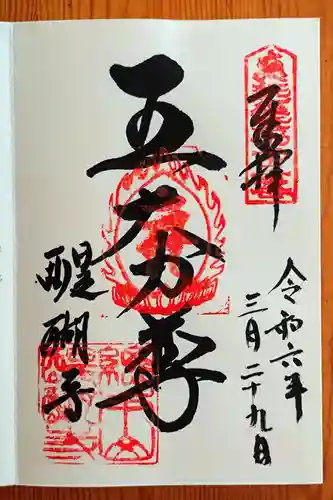 奉拝
令和六年
三月二十九日
五大力尊
醍醐寺